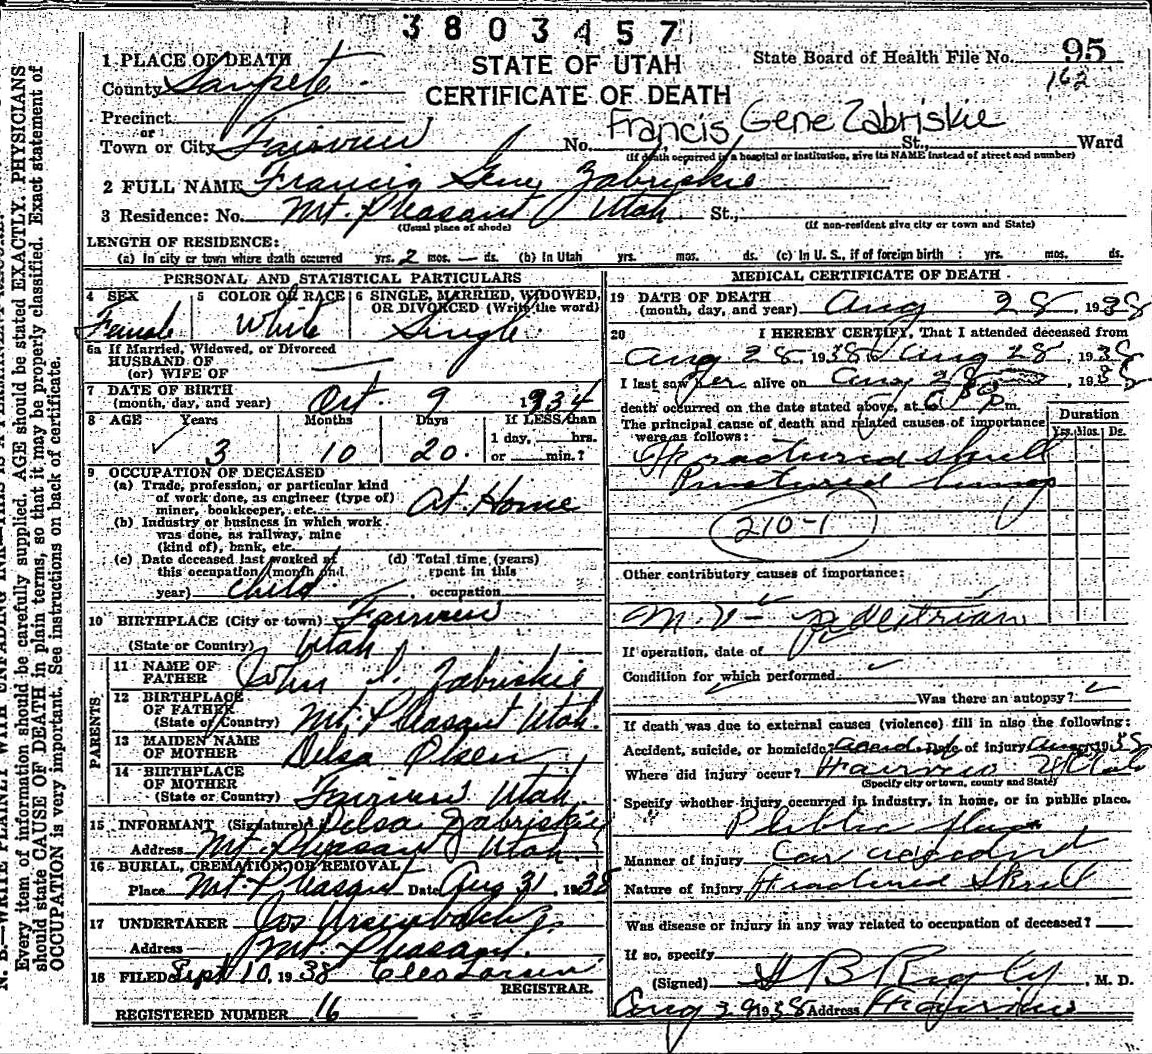 3803457
STATE OF UTAH
CERTIFICATE OF DEATH
State Board of Health File No. 95
162
1 PLACE OF DEATH
County Sanpete
Precinct
or
Town or City Fairview No. Francis Gene Zabriskie St., Ward
(If death occurred in a hospital or institution, give its NAME instead of street and number)
2 FULL NAME Francis Gene Zabriskie
3 Residence: No. Mt. Pleasant Utah St.,
(Usual place of abode) (If non-resident give city or town and State)
LENGTH OF RESIDENCE:
(a) In city or town where death occurred yrs. 2 mos. — ds. (b) In Utah yrs. mos. ds. (c) In U. S., if of foreign birth : yrs. mos. ds.
PERSONAL AND STATISTICAL PARTICULARS
4 SEX Female
5 COLOR OR RACE White
6 SINGLE, MARRIED, WIDOWED, OR DIVORCED (Write the word) Single
6a If Married, Widowed, or Divorced
HUSBAND OF
(or) WIFE OF
7 DATE OF BIRTH
(month, day, and year) Oct. 9 1934
8 AGE Years Months Days If LESS than
3 10 20. 1 day, hrs.
or min.?
9 OCCUPATION OF DECEASED
(a) Trade, profession, or particular kind
of work done, as engineer (type of)
miner, bookkeeper, etc. At Home
(b) Industry or business in which work
was done, as railway, mine
(kind of), bank, etc.
(c) Date deceased last worked at
this occupation (month and
year) Child
(d) Total time (years)
spent in this
occupation
10 BIRTHPLACE (City or town) Fairview
(State or Country) Utah
PARENTS
11 NAME OF
FATHER John I. Zabriskie
12 BIRTHPLACE
OF FATHER
(State or Country) Mt. Pleasant Utah.
13 MAIDEN NAME
OF MOTHER Delsa Olsen
14 BIRTHPLACE
OF MOTHER
(State or Country) Fairview Utah.
15 INFORMANT (Signature) Delsa Zabriskie
Address Mt. Pleasant Utah.
16 BURIAL, CREMATION, OR REMOVAL
Place Mt. Pleasant Date Aug 31, 1938
17 UNDERTAKER Jos
Address Mt Pleasant.
18 FILED Sept 10, 1938 Cleo Larsen
REGISTRAR.
REGISTERED NUMBER 16
MEDICAL CERTIFICATE OF DEATH
19 DATE OF DEATH
(month, day, and year) Aug 28, 1938
20 I HEREBY CERTIFY, That I attended deceased from
Aug 28 1938 to Aug 28, 1938
I last saw her alive on Aug 28, 1938
death occurred on the date stated above, at 6 P m.
The principal cause of death and related causes of importance
were as follows:
Duration
Yrs. Mos. Ds.
Fractured Skull
Punctured lung
210-1
Other contributory causes of importance:
M.V- pedestrian
If operation, date of
Condition for which performed
Was there an autopsy?
If death was due to external causes (violence) fill in also the following:
Accident, suicide, or homicide? Date of injury Aug 1938
Where did injury occur? Fairview Utah
(Specify city or town, county and State)
Specify whether injury occurred in industry, in home, or in public place.
Public place
Manner of injury Car accident
Nature of injury Fractured Skull
Was disease or injury in any way related to occupation of deceased?
If so, specify
(Signed) H B Rigby, M. D.
Aug 1938 Address Fairview
Every item of information should be carefully supplied. AGE should be stated EXACTLY. PHYSICIANS
should state CAUSE OF DEATH in plain terms, so that it may be properly classified. Exact statement of
OCCUPATION is very important. See instructions on back of certificate.